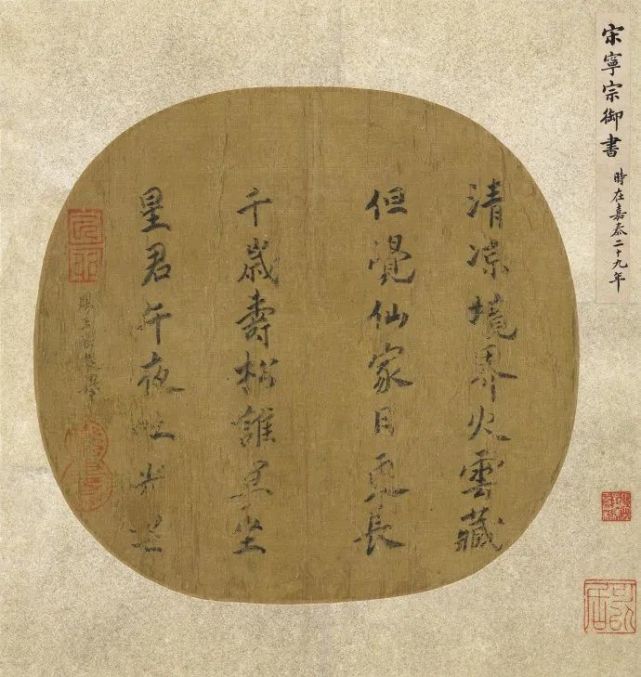 宋寧宗御書
時在嘉泰二十九年
清凉境界火雲藏
但覺仙家日更長
千歲壽松誰坐
星君午夜吐光芒